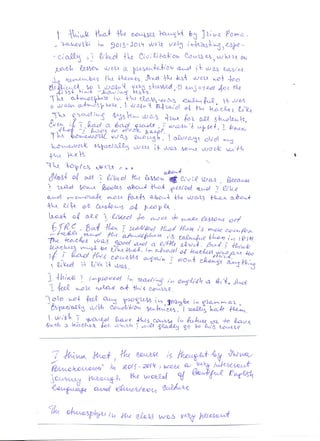 I think that the courses taught by Irine Pomo-
-zakovski in 2013-2014 were very interesting, espe-
-cially I liked the Civilization Courses, where on
each lesson were a presentation and it was easier
to remember the themes. And the test were not too
difficult, so I wasn't very stressed, I enjoyed for the
first time having tests.
The atmosphere in the class was calmful, it was
a warm atmosphere, I wasn't afraid of the teacher like
The grading system was fine for all students,
Even if I had a bad grade, I wasn't upset, I knew
that
The homework was enough, I always did my
homework especially were it was some work with
the texts.
The topics were
Most of all I liked the lesson about Civil War, Because
I read some books about that period and I like
and memorate more facts about the wars then about
the life or customs of people.
least of all I liked to
But then I realized that there is more comfor-
-table and the atmosphere is calmful than in
The teacher was good and a little about. And I think
teachers must be like that, instead of
if I had this courses again I wont change anything
I liked it like it was.
I think I improved in reading in english a bit. And
I feel more relaxed at this course.
I do not feel any progress in, maybe in grammar.
Especially with Condition sentences, I really hate them
I wish I would have this course in future or to have
such a teacher for which I will gladly go to his course
I think that, the course is thought by Irina
in 2013-2014, were a very interesent
journey through the world of Beautiful English
language and American Culture
The atmosphere in the class was very pleasent